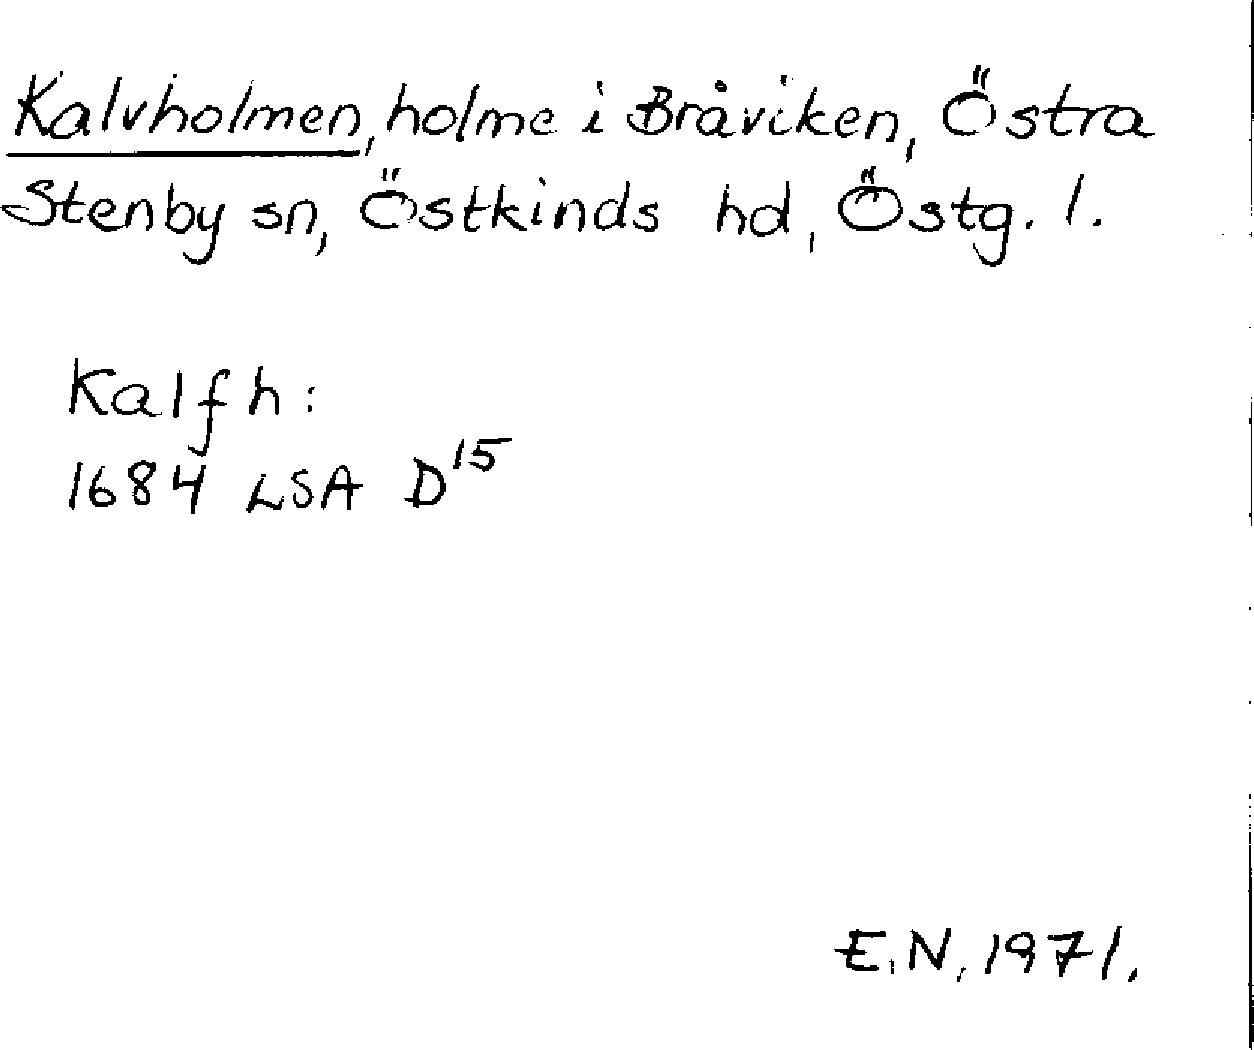 Kalvholmen, holme i Bråviken, Östra
Stenby sn, Östkinds hd, Östg. l.
Kalfh:
1684 LSA D15
E.N. 1971.